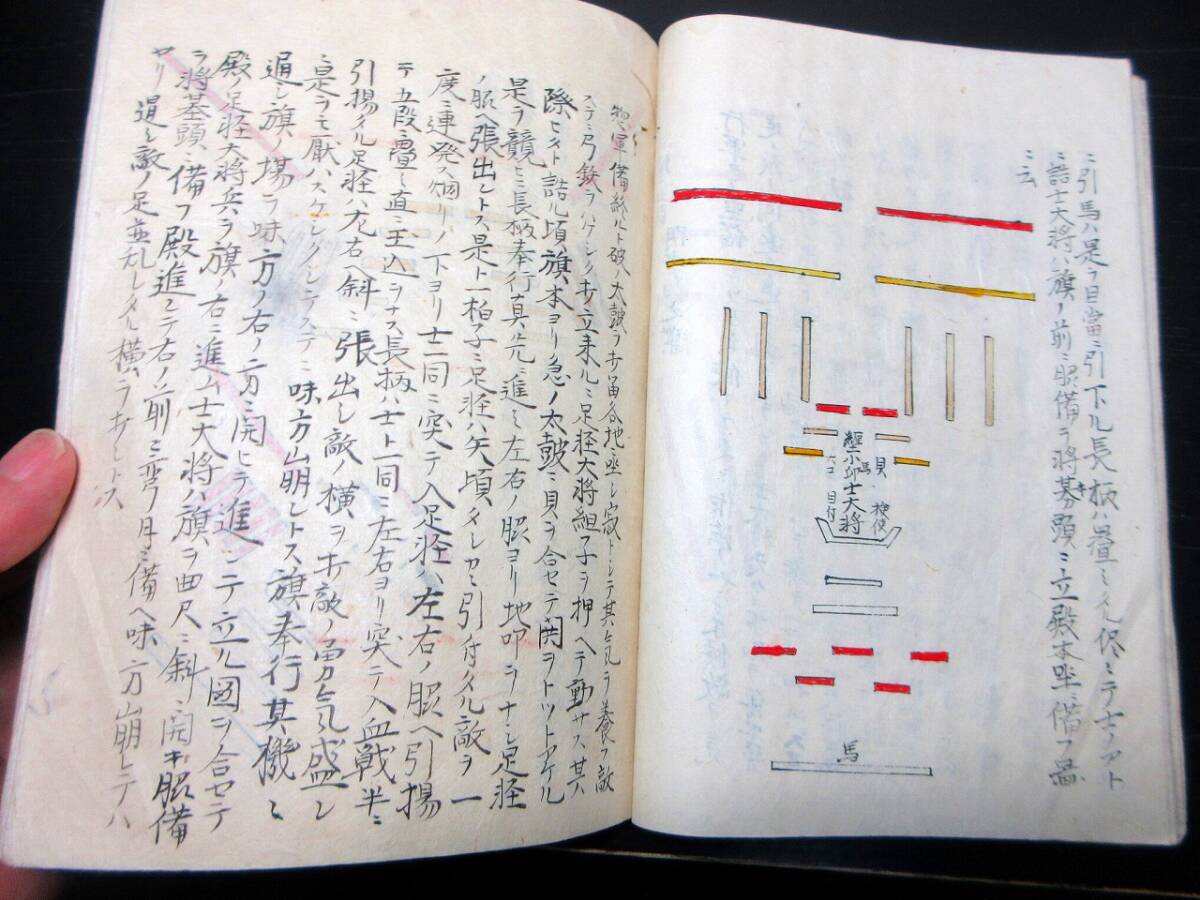 ニ引馬ハ足ラ目當ニ引下ル長柄ハ疊ミタル侭ミテ士ノアト
ニ詰士大将ハ旗ノ前ニ脇備ラ将棊頭ミ立殿本坐ニ備フ圖
ニ云
貝
馬
士大将
目付
検使
馬
惣軍備終ルト破ハ太鼓ヲ打歯各地坐シ寂トシテ其気ヲ養フ敵
ステニ弓鉄ラハケシク打立来ルニ足軽大将組子ヲ押ヘテ動サス其
際ヒキト詰ル頃旗本ヨリ急ノ太鼓ニ貝ヲ合セテ鬨ヲトツトアケル
是ラ競ヒニ長柄奉行真先ニ進ミ左右ノ脇ヨリ地叩ラナシ足軽
ノ脇ヘ張出シトス是ト一柏子ニ足軽ハ矢頃タシカニ引付タル敵ヲ一
度ニ連発ス烟リノ下ヨリ士一同ニ突テ入足軽ハ左右ノ脇ヘ引揚
テ五段ニ疊ミ直ニ玉込ヲナス長柄ハ士ト一同ニ左右ヨリ突テ入血戦半ニ
引揚タル足軽ハ左右ヘ斜ニ張出シ敵ノ横ヲ打敵ノ勇気盛シ
ニ是ラモ厭ハスケレクレニステニ味方山崩レトス旗奉行其機ヒ
通シ旗ノ場ラ味方ノ右ノ方ニ開ヒテ進ンテ立ル圖ヲ合セテ
殿ノ足軽大将兵ラ旗ノ右ニ進ム士大将ハ旗ヲ曲尺ニ斜ニ開キ脇備
ラ将棊頭ニ備フ殿進ミテ右ノ前ミ弯月ミ備ヘ味方崩レテハ
ヤリ過シ敵ノ足並乱レタル横ラ打ントス